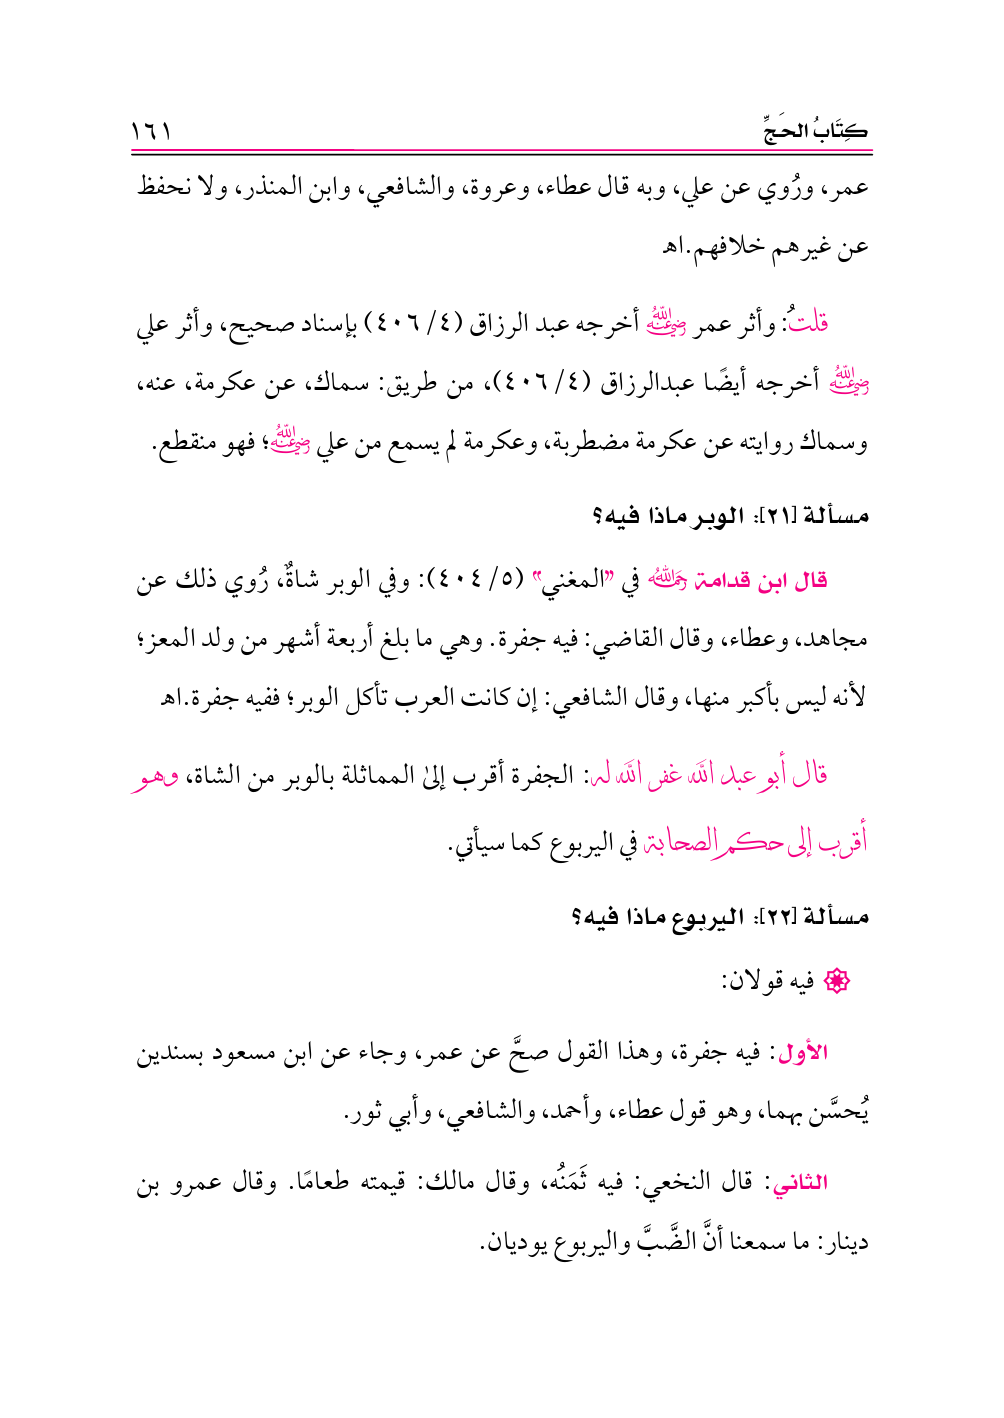 كِتَابُ الحَجِّ ١٦١
عمر، ورُوي عن علي، وبه قال عطاء، وعروة، والشافعي، وابن المنذر، ولا نحفظ
عن غيرهم خلافهم.اهـ
قلتُ: وأثر عمر رضي الله عنه أخرجه عبد الرزاق (٤/ ٤٠٦) بإسناد صحيح، وأثر علي
رضي الله عنه أخرجه أيضًا عبدالرزاق (٤/ ٤٠٦)، من طريق: سماك، عن عكرمة، عنه،
وسماك روايته عن عكرمة مضطربة، وعكرمة لم يسمع من علي رضي الله عنه؛ فهو منقطع.
مسألة [٢١]: الوبر ماذا فيه؟
قال ابن قدامة رحمه الله في "المغني" (٥/ ٤٠٤): وفي الوبر شاةٌ، رُوي ذلك عن
مجاهد، وعطاء، وقال القاضي: فيه جفرة. وهي ما بلغ أربعة أشهر من ولد المعز؛
لأنه ليس بأكبر منها، وقال الشافعي: إن كانت العرب تأكل الوبر؛ ففيه جفرة.اهـ
قال أبو عبد الله غفر الله له: الجفرة أقرب إلىٰ المماثلة بالوبر من الشاة، وهو
أقرب إلى حكم الصحابة في اليربوع كما سيأتي.
مسألة [٢٢]: اليربوع ماذا فيه؟
فيه قولان:
الأول: فيه جفرة، وهذا القول صحَّ عن عمر، وجاء عن ابن مسعود بسندين
يُحسَّن بهما، وهو قول عطاء، وأحمد، والشافعي، وأبي ثور.
الثاني: قال النخعي: فيه ثَمَنُه، وقال مالك: قيمته طعامًا. وقال عمرو بن
دينار: ما سمعنا أنَّ الضَّبَّ واليربوع يوديان.